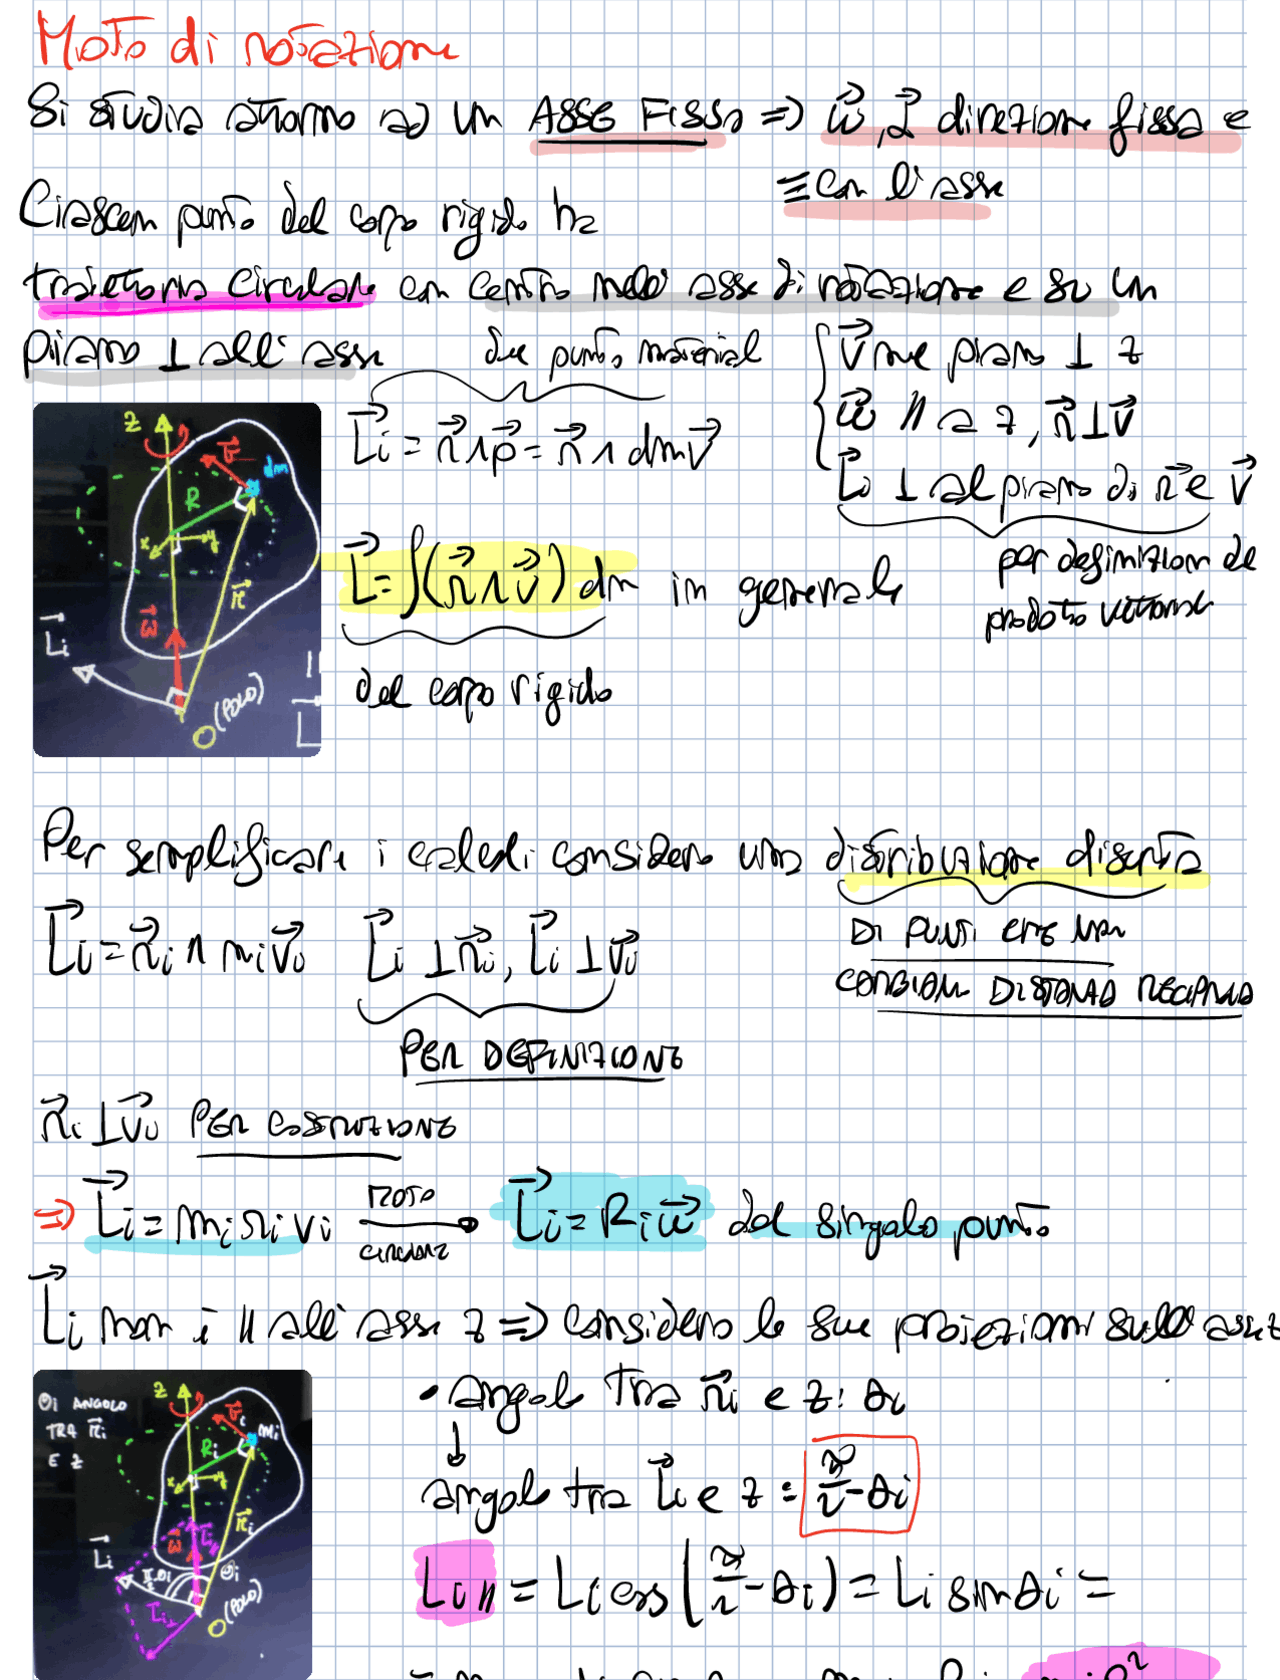 Moto di rotazione
Si studia attorno ad un ASSE FISSO => ω⃗, α⃗ direzione fissa e
≡ con l'asse
Ciascun punto del corpo rigido ha
traiettoria circolare con centro nell'asse di rotazione e su un
piano ⊥ all'asse
due punto material
V⃗ nel piano ⊥ z
ω⃗ ∥ a z, r⃗ ⊥ v⃗
L⃗i ⊥ al piano di r⃗ e v⃗
per definizion de
prodotto vettorial
L⃗i = r⃗ ∧ p⃗ = r⃗ ∧ dm v⃗
L⃗ = ∫(r⃗ ∧ v⃗) dm in generale
del corpo rigido
z
v⃗
dm
R
x
y
r⃗
ω⃗
L⃗i
O (POLO)
L
Per semplificare i calcoli considero una distribuzione discreta
DI PUNTI CHE NON
CAMBIANO DISTANZA RECIPROCA
L⃗i = r⃗i ∧ mi v⃗i L⃗i ⊥ r⃗i, L⃗i ⊥ v⃗i
PER DEFINIZIONE
r⃗i ⊥ v⃗i PER COSTRUZIONE
=> L⃗i = mi ri vi MOTO CIRCOLARE → L⃗i = Ri ω⃗ del singolo punto
L⃗i non è ∥ all'asse z => considero le sue proiezioni sull'asse z
θi ANGOLO
TRA r⃗i
E z
z
v⃗i
mi
Ri
x
y
r⃗i
ω⃗
L∥
L⃗i
π/2-θi
θi
L⃗i⊥
O (POLO)
• angolo tra r⃗i e z: θi
↓
angolo tra L⃗i e z = π/2 - θi
Li∥ = Li cos(π/2 - θi) = Li sin θi =